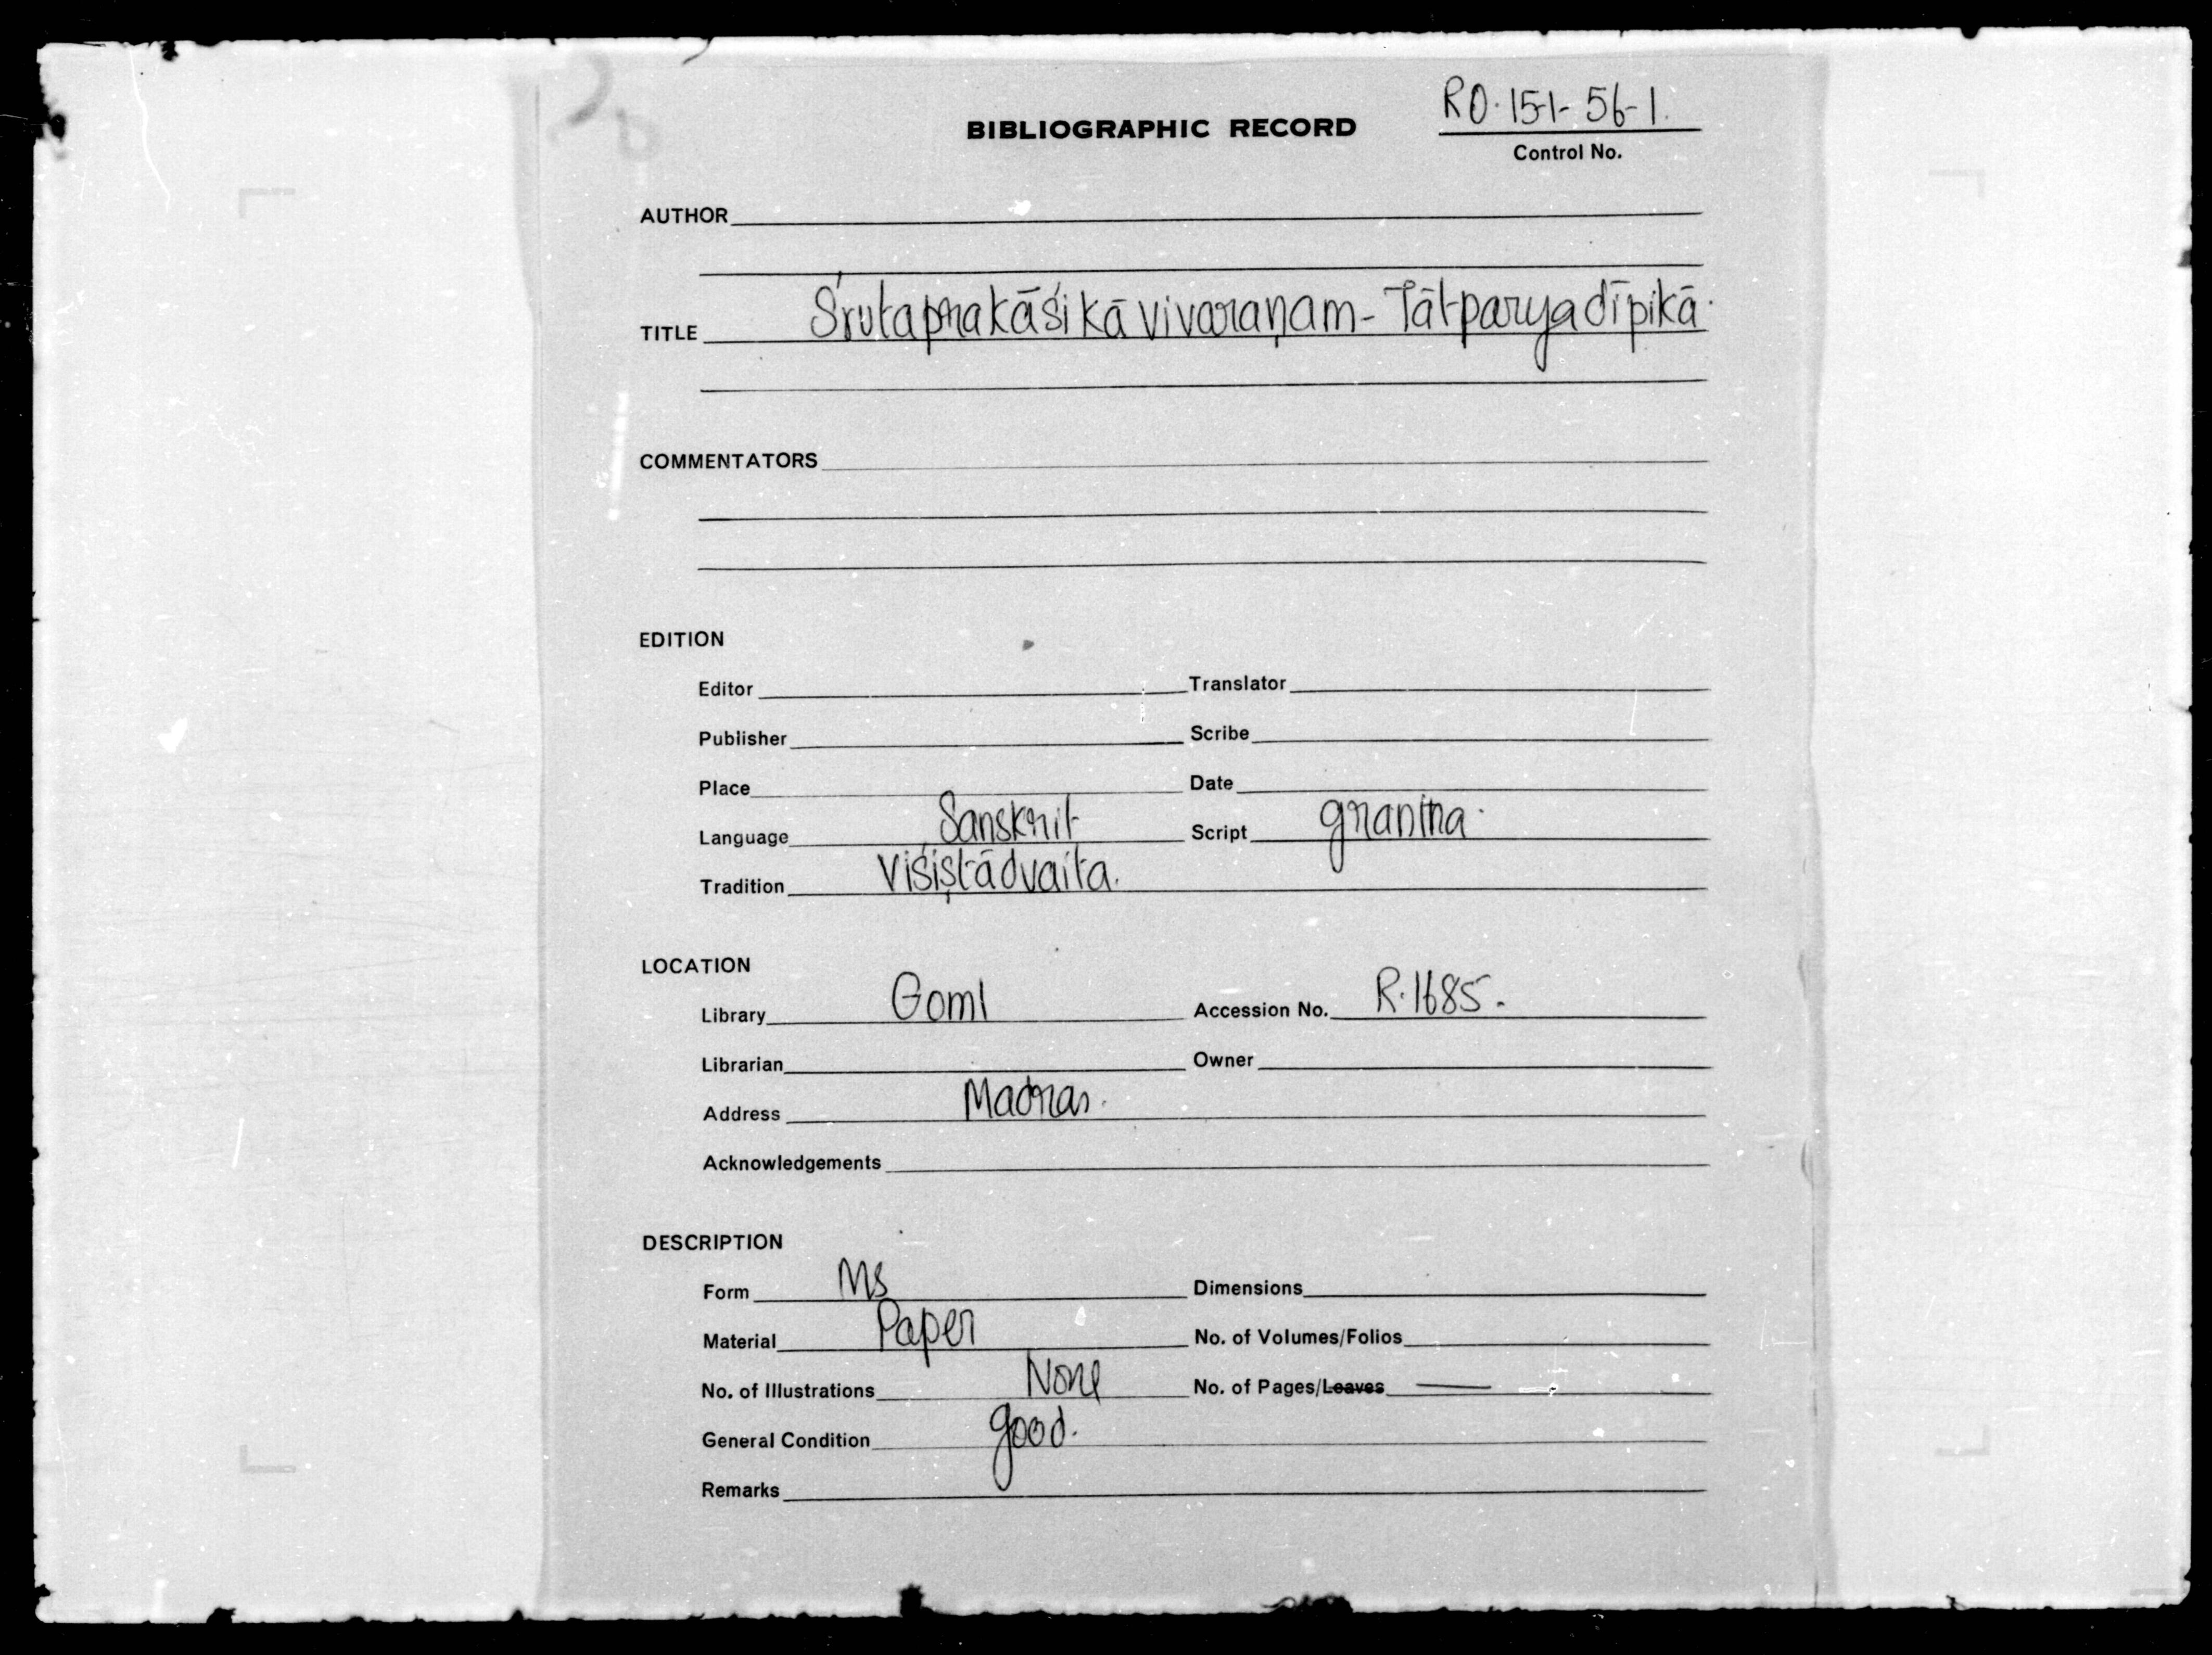 RO.151-56-1.
BIBLIOGRAPHIC RECORD
Control No.
AUTHOR
TITLE Śrutaprakāśikāvivaraṇam - Tātparyadīpikā.
COMMENTATORS
EDITION
Editor Translator
Publisher Scribe
Place Date
Language Sanskrit Script grantha.
Tradition Viśiṣtādvaita.
LOCATION
Library Goml Accession No. R.1685.
Librarian Owner
Address Madras.
Acknowledgements
DESCRIPTION
Form Ms Dimensions
Material Paper No. of Volumes/Folios
No. of Illustrations None No. of Pages/Leaves —
General Condition good.
Remarks